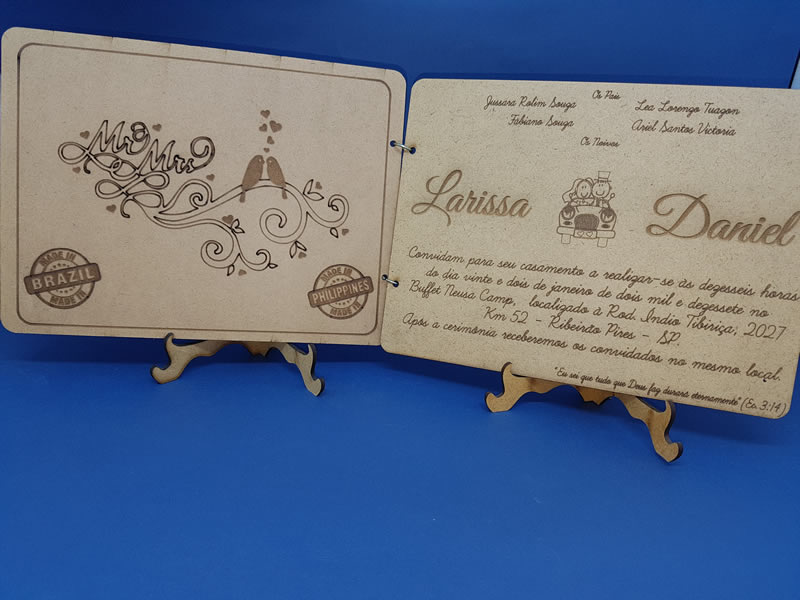 Mr & Mrs
MADE IN
BRAZIL
MADE IN
MADE IN
PHILIPPINES
MADE IN
Os Pais
Jussara Rolim Souza
Fabiano Souza
Lea Lorengo Tuagon
Ariel Santos Victoria
Os Noivos
Larissa
Daniel
Convidam para seu casamento a realizar-se às dezesseis horas
do dia vinte e dois de janeiro de dois mil e dezessete no
Buffet Neusa Camp, localizado à Rod. Indio Tibiriça, 2027
Km 52 - Ribeirão Pires - SP.
Após a cerimônia receberemos os convidados no mesmo local.
"Eu sei que tudo que Deus faz durará eternamente" (Ec. 3:14)